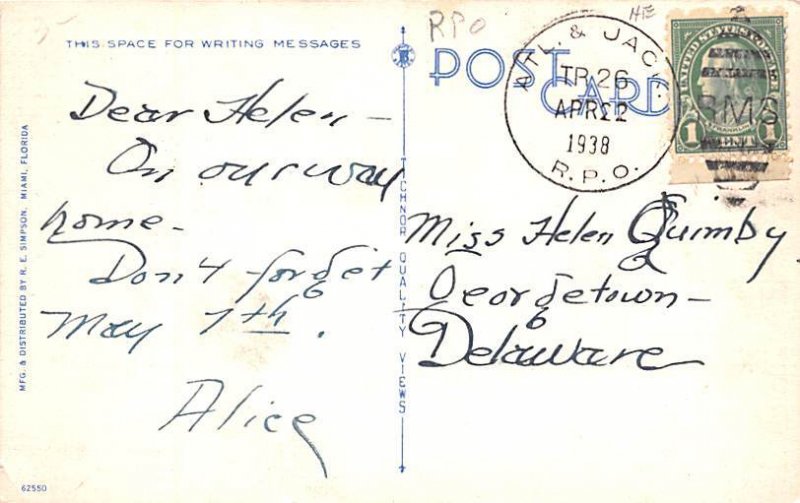 THIS SPACE FOR WRITING MESSAGES
Dear Helen -
On our way
home -
Don't forget
May 7th.
Alice
62550
MFG. & DISTRIBUTED BY R. E. SIMPSON, MIAMI, FLORIDA
TECHNOR QUALITY VIEWS
RPO
POST CARD
ATL. & JACK.
TR 26
APR 22
1938
R.P.O.
RMS
UNITED STATES POSTAGE
FRANKLIN
1 1
Miss Helen Quimby
Georgetown -
Delaware